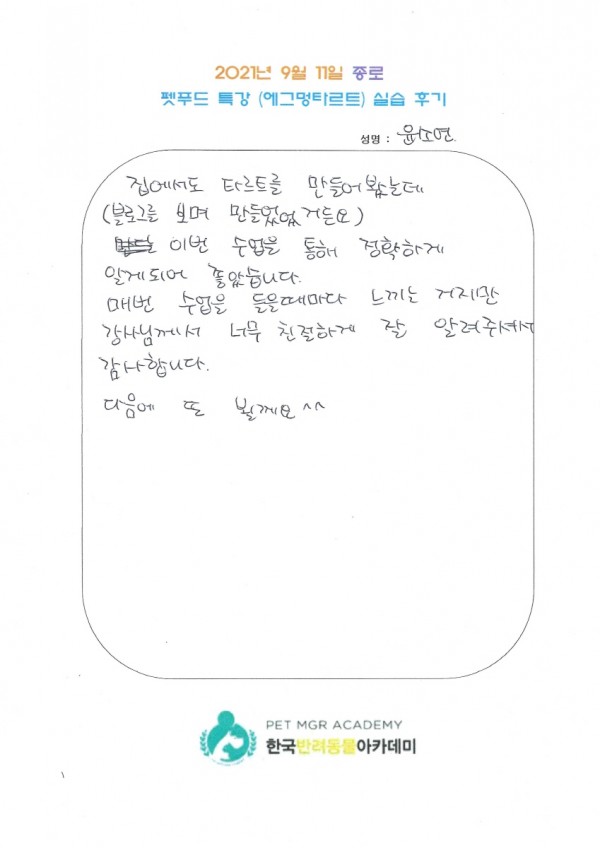 2021년 9월 11일 종로
펫푸드 특강 (에그멍타르트) 실습 후기
성명 : 윤소연
집에서도 타르트를 만들어봤는데
(블로그를 보며 만들었었거든요)
이번 수업을 통해 정확하게
알게되어 좋았습니다.
매번 수업을 들을때마다 느끼는 거지만
강사님께서 너무 친절하게 잘 알려주셔서
감사합니다.
다음에 또 뵐께요^^
PET MGR ACADEMY
한국반려동물아카데미